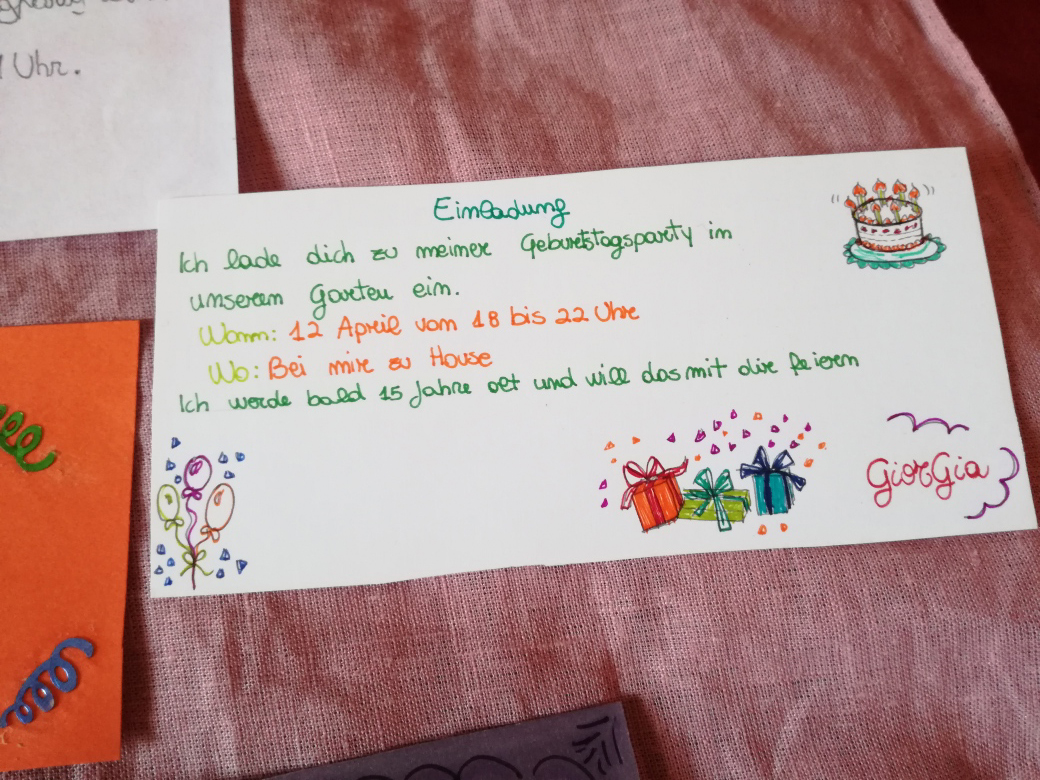 Uhr.
Einladung
Ich lade dich zu meiner Geburtstagsparty in
unserem Garten ein.
Wann: 12 April von 18 bis 22 Uhr
Wo: Bei mir zu Hause
Ich werde bald 15 Jahre alt und will das mit dir feiern
Giorgia